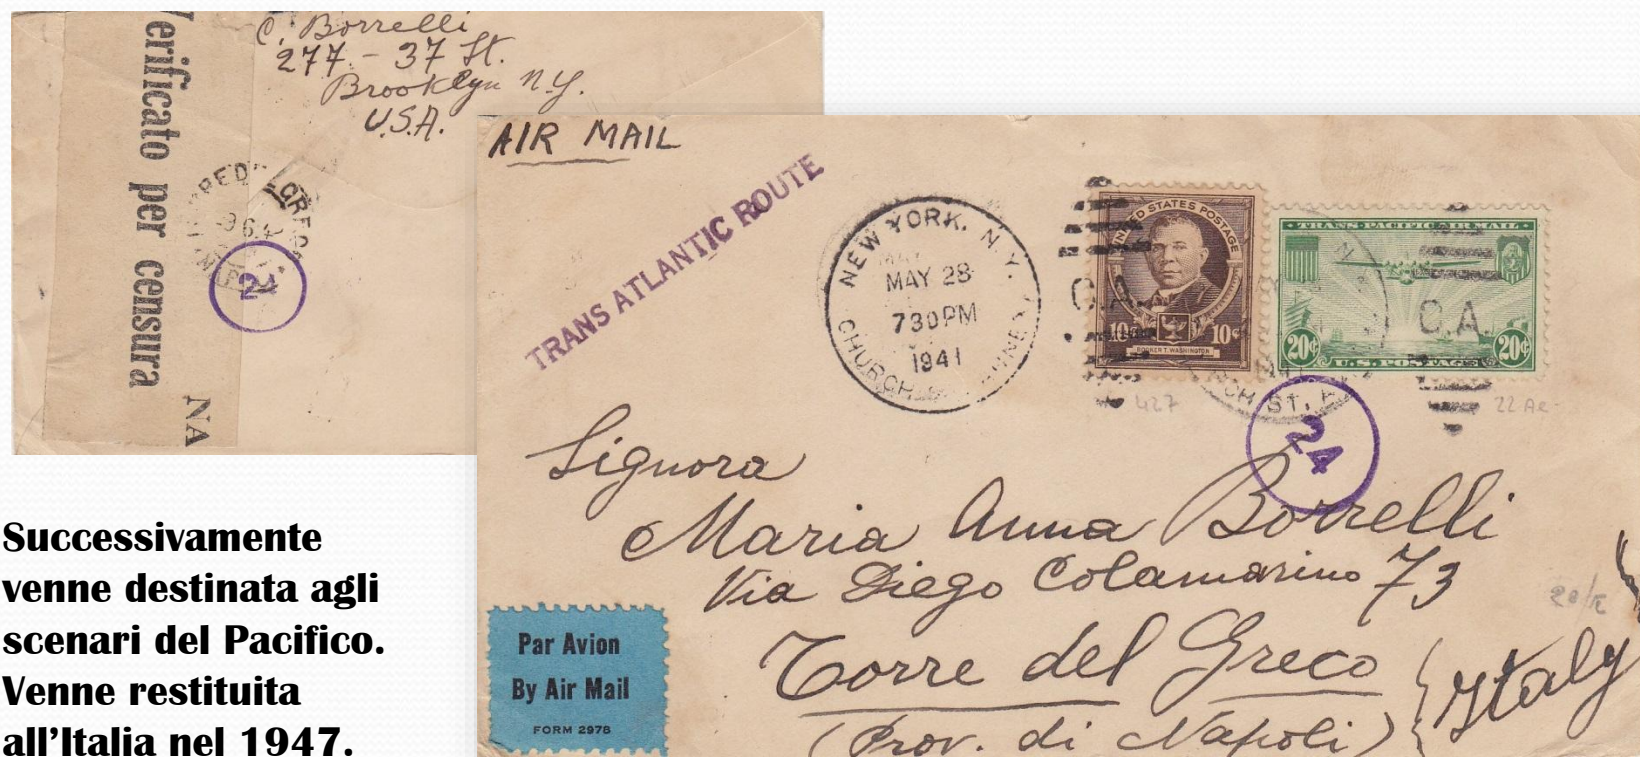 C. Borrelli
277 - 37 St.
Brooklyn N.Y.
U.S.A.
Verificato per censura
NA
24
AIR MAIL
TRANS ATLANTIC ROUTE
NEW YORK, N.Y.
MAY 28
730PM
1941
CHURCH
UNITED STATES POSTAGE
10¢ 10¢
BOOKER T. WASHINGTON
C.A.
TRANS-PACIFIC AIR MAIL
20¢ 20¢
U.S. POSTAGE
C.A.
CH ST.
427
24
Signora
Maria Anna Borrelli
Via Diego Colamarino 73
Torre del Greco
(Prov. di Napoli)
Italy
Par Avion
By Air Mail
FORM 2978
Successivamente
venne destinata agli
scenari del Pacifico.
Venne restituita
all'Italia nel 1947.